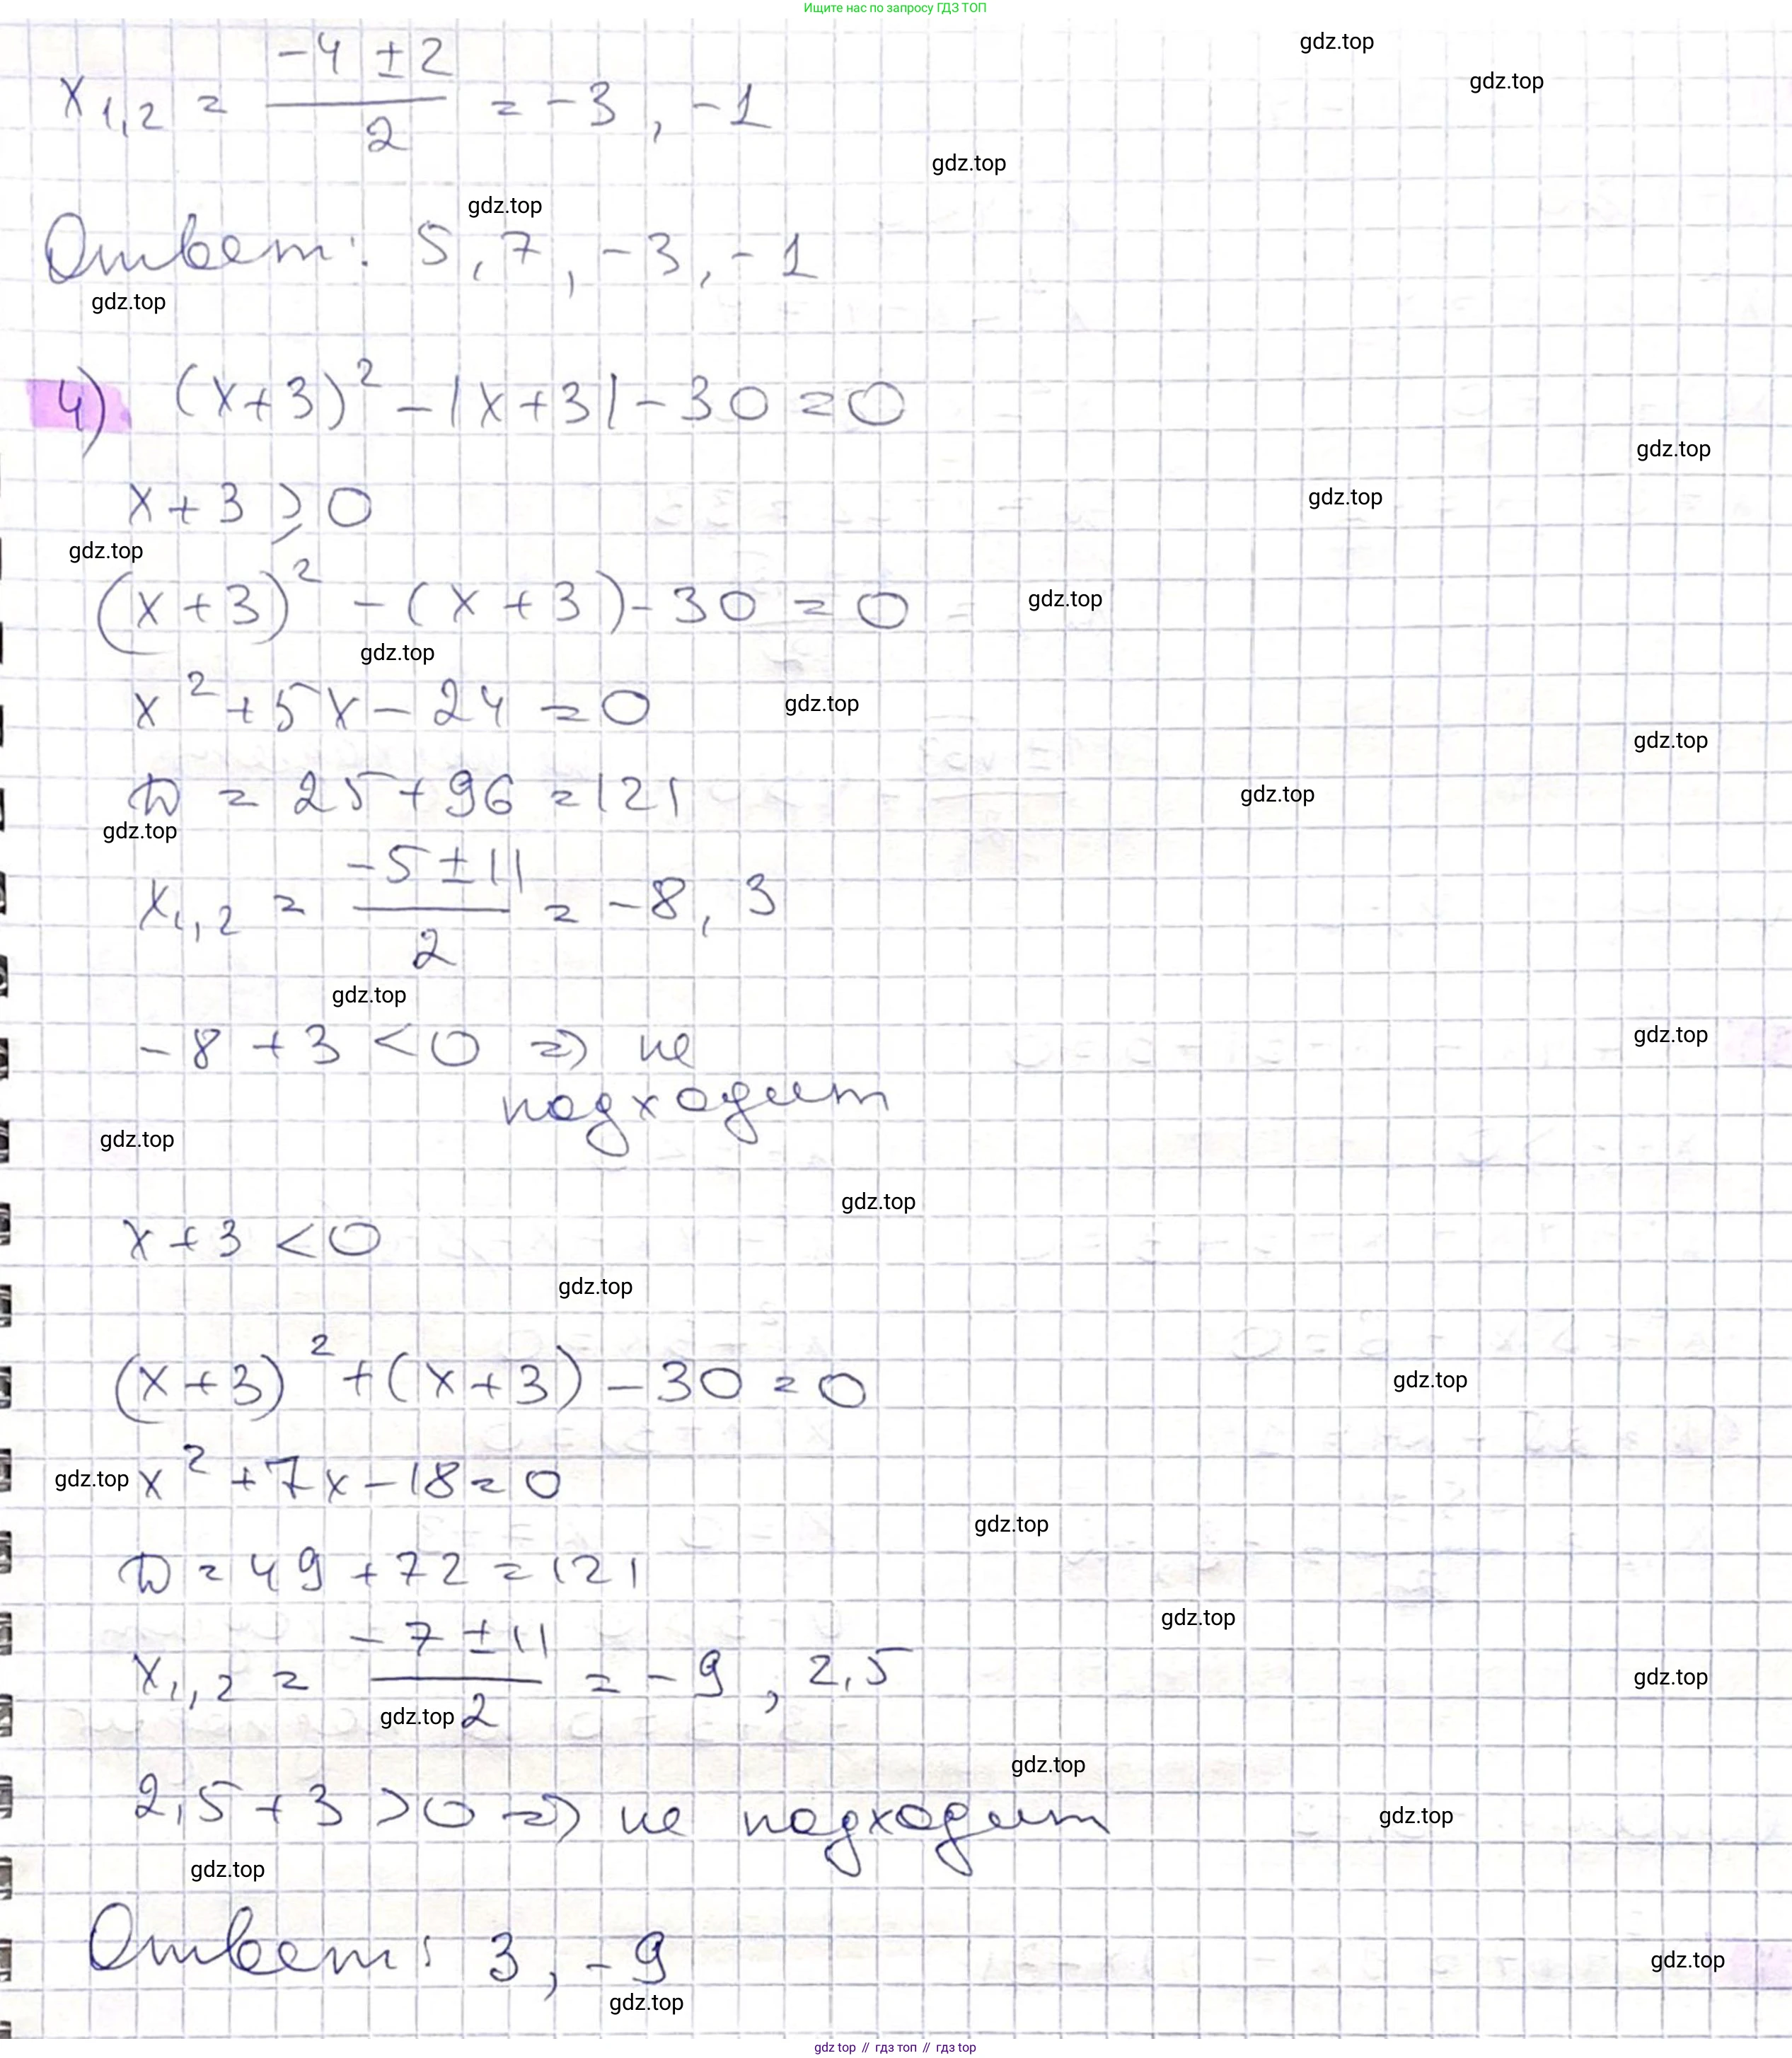 Ищите нас по запросу ГДЗ ТОП
gdz.top
gdz.top
x₁,₂ = (-4 ± 2)/2 = -3, -1
gdz.top
gdz.top
Ответ: 5, 7, -3, -1
gdz.top
4) (x+3)² - |x+3| - 30 = 0
gdz.top
x + 3 ⩾ 0
gdz.top
gdz.top
(x+3)² - (x+3) - 30 = 0
gdz.top
gdz.top
x² + 5x - 24 = 0
gdz.top
gdz.top
D = 25 + 96 = 121
gdz.top
gdz.top
x₁,₂ = (-5 ± 11)/2 = -8, 3
gdz.top
-8 + 3 < 0 => не
gdz.top
подходит
gdz.top
gdz.top
x + 3 < 0
gdz.top
(x+3)² + (x+3) - 30 = 0
gdz.top
gdz.top
x² + 7x - 18 = 0
gdz.top
D = 49 + 72 = 121
gdz.top
x₁,₂ = (-7 ± 11)/2 = -9, 2,5
gdz.top
gdz.top
gdz.top
2,5 + 3 > 0 => не подходит
gdz.top
gdz.top
Ответ: 3, -9
gdz.top
gdz.top
gdz top // гдз топ // гдз top